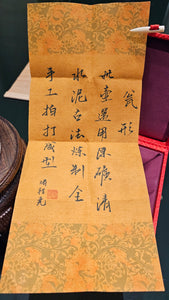 瓮形
此壶选用深礦清
水泥古法炼制全
手工拍打成型